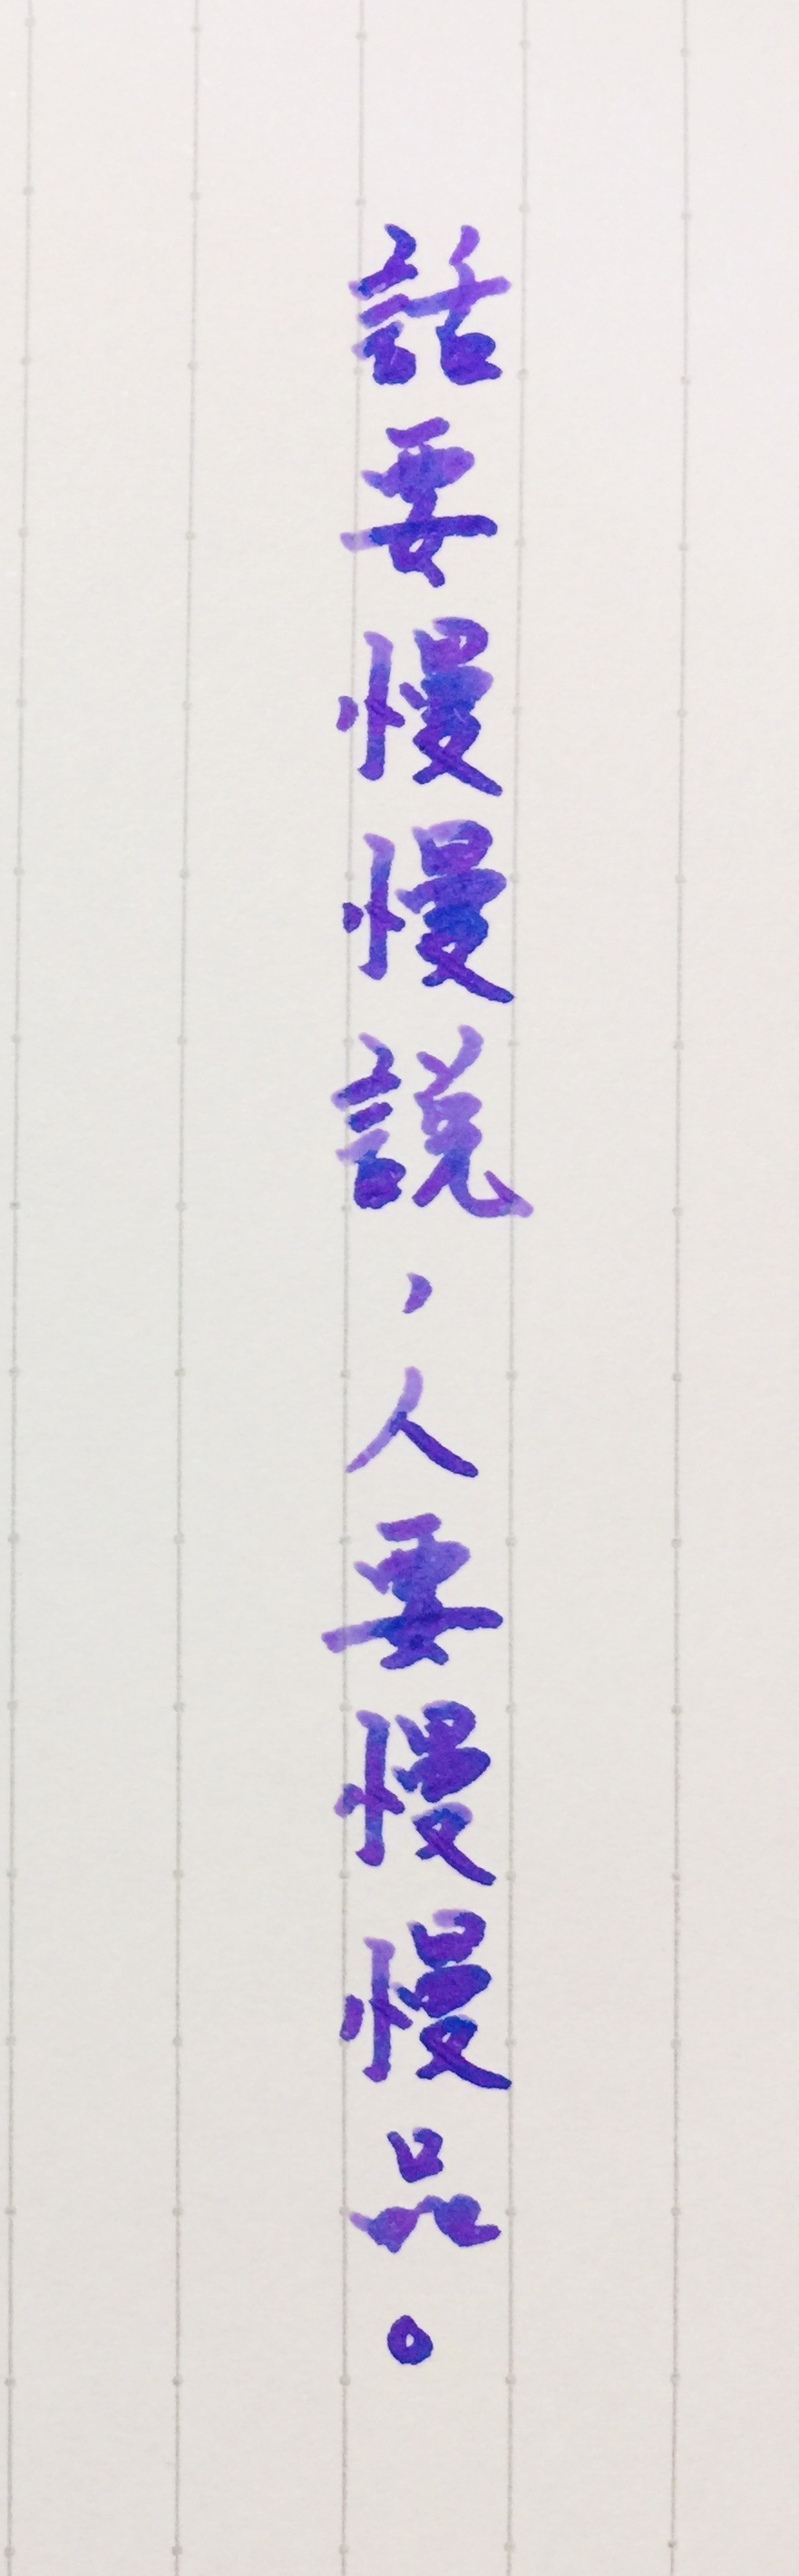 話要慢慢說，人要慢慢品。